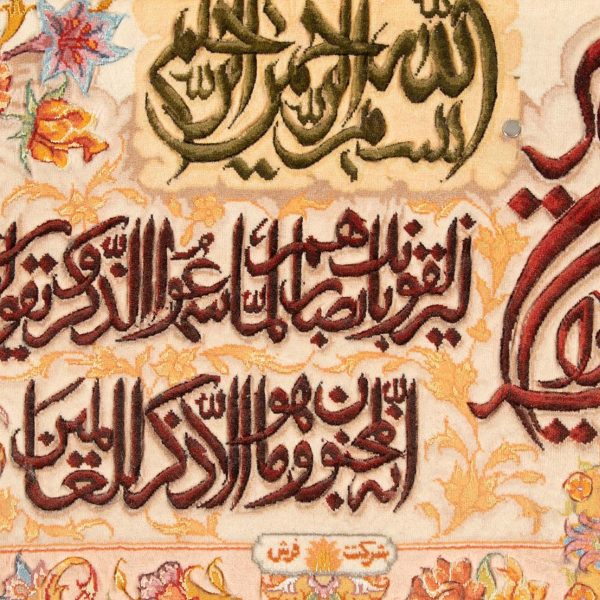 بسم الله الرحمن الرحيم
ليزلقونك بابصارهم لما سمعوا الذكر ويقولو
انه لمجنون وما هو الا ذكر للعالمين
شرکت فرش